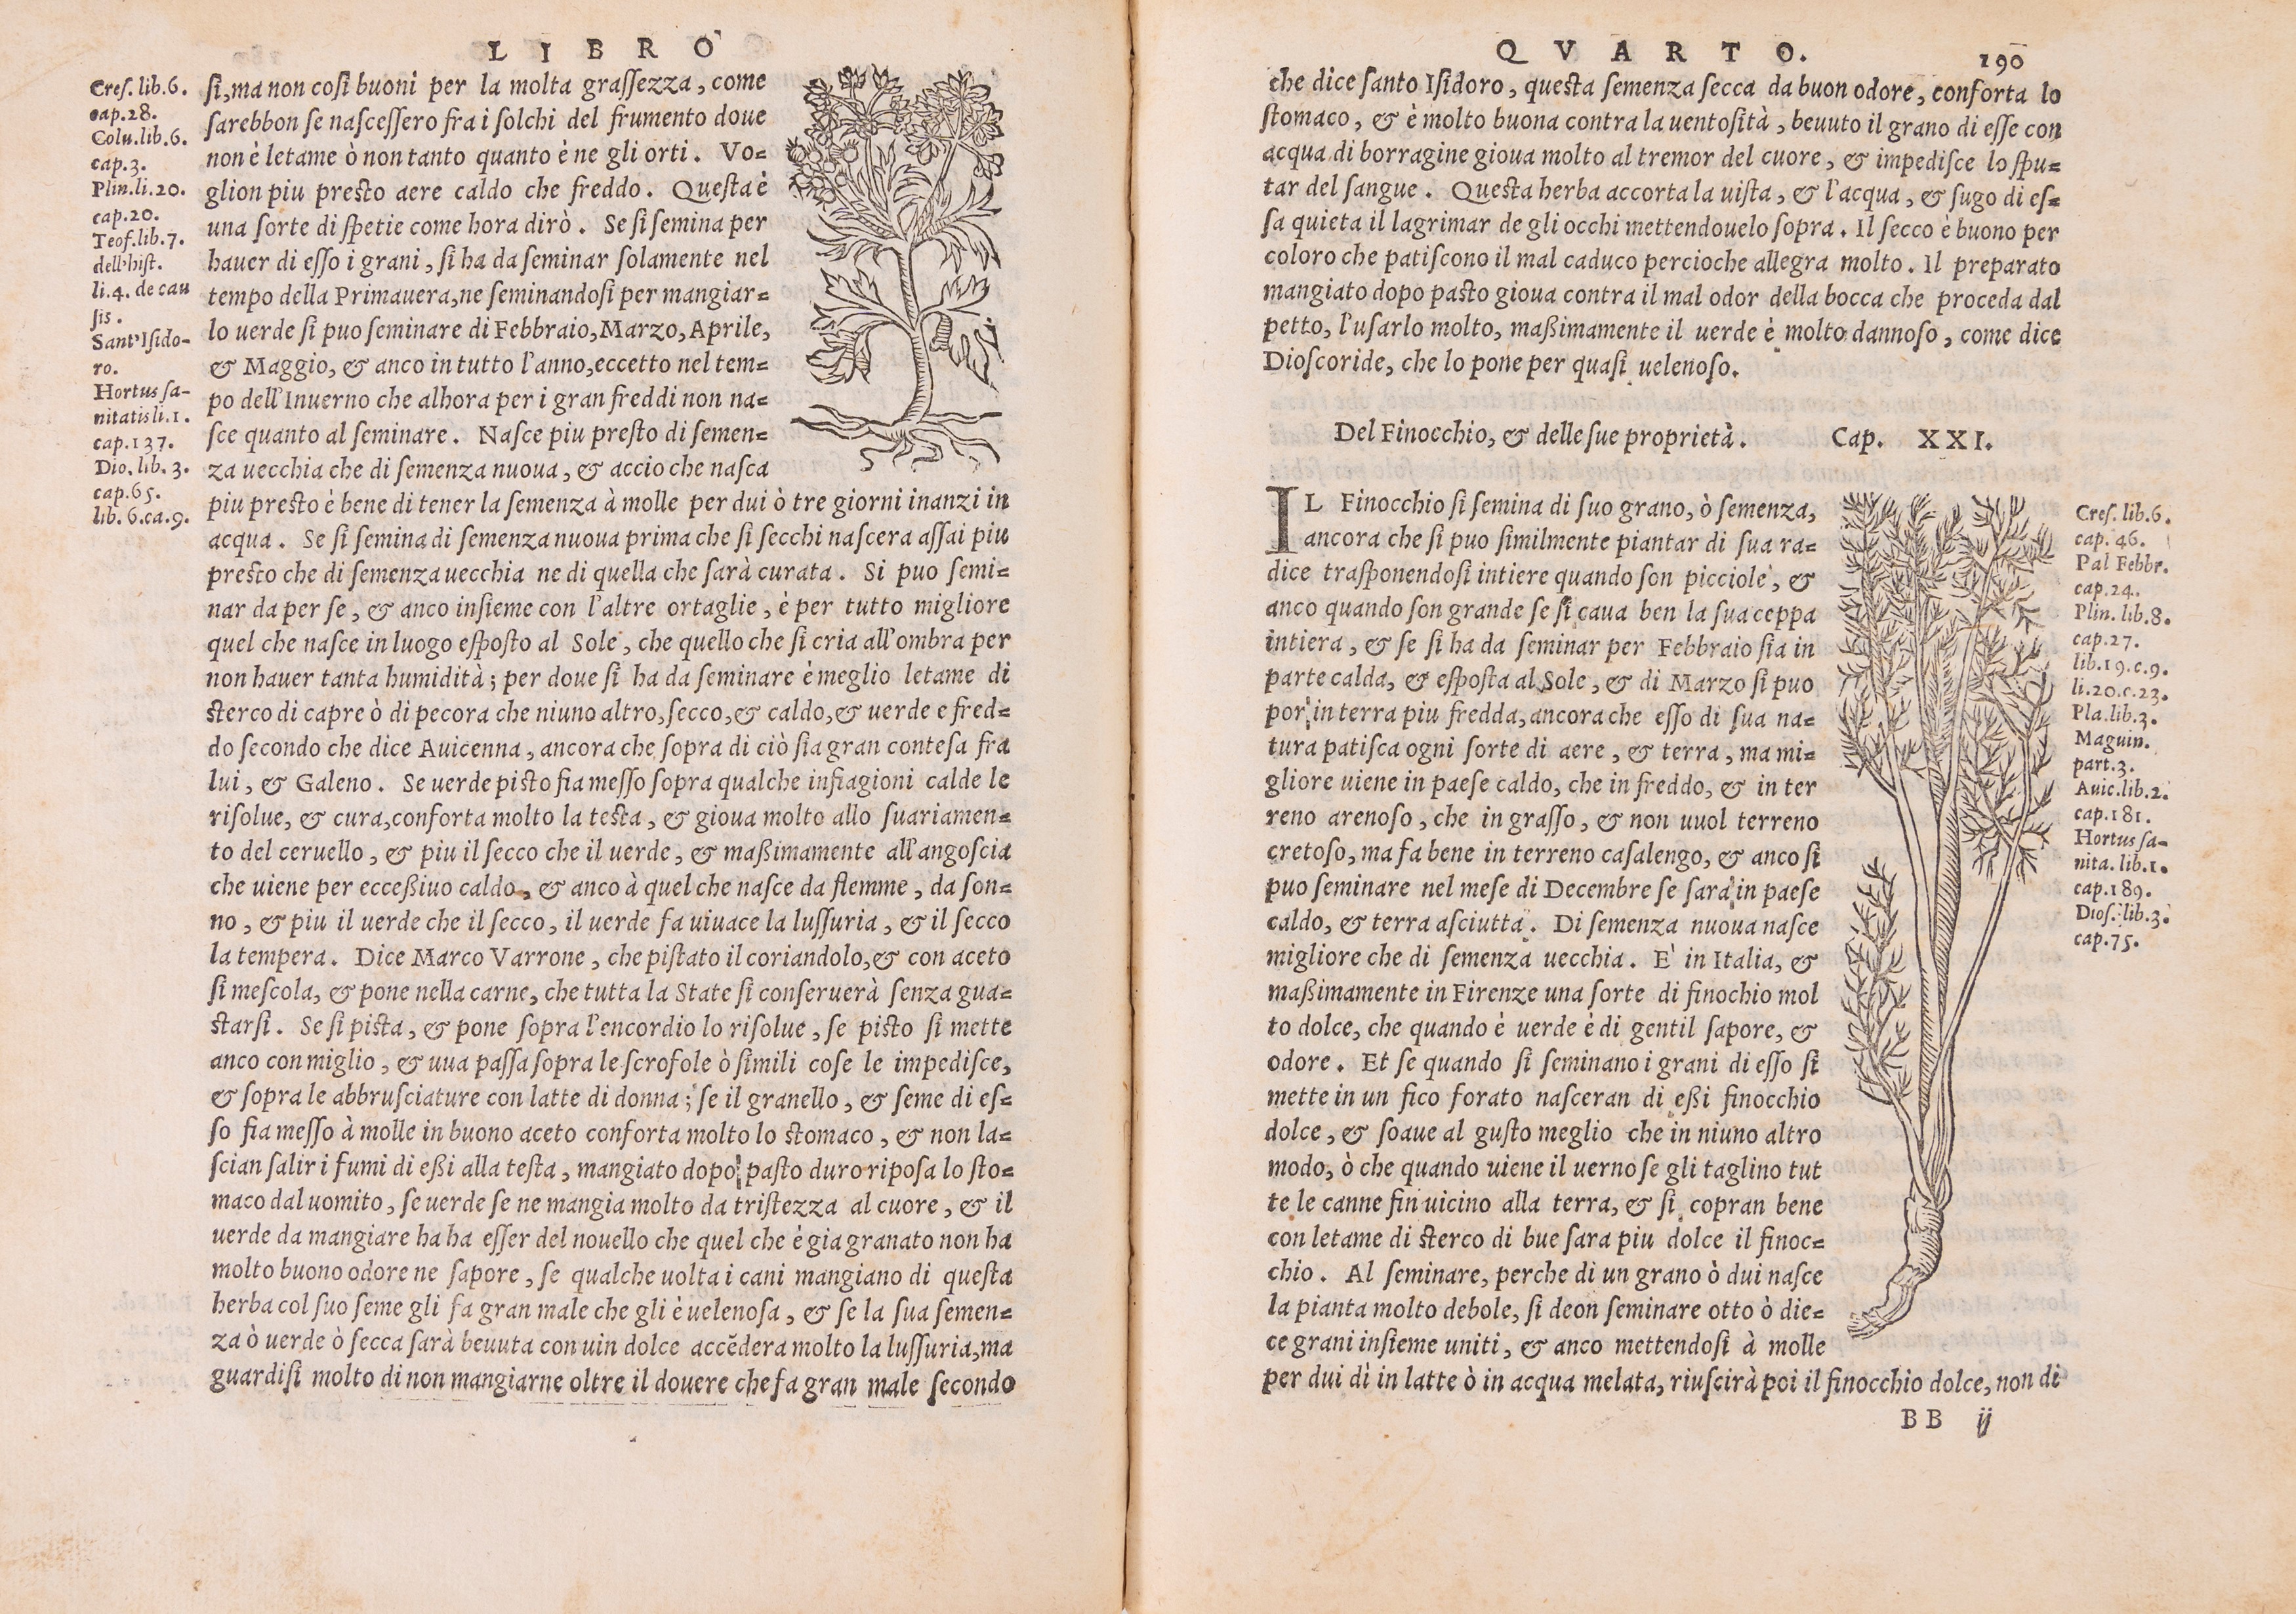 LIBRO
Cres. lib.6.
cap.28.
Colu.lib.6.
cap.3.
Plin.li.20.
cap.20.
Teof.lib.7.
dell'hist.
li.4. de cau
sis.
Sant'Isido-
ro.
Hortus sa-
nitatis li.1.
cap.137.
Dio. lib. 3.
cap.65.
lib. 6.ca.9.
si, ma non cosi buoni per la molta grassezza, come
sarebbon se nascessero fra i solchi del frumento doue
non è letame ò non tanto quanto è ne gli orti. Vo-
glion piu presto aere caldo che freddo. Questa è
una sorte di spetie come hora dirò. Se si semina per
hauer di esso i grani, si ha da seminar solamente nel
tempo della Primauera, ne seminandosi per mangiar-
lo uerde si puo seminare di Febbraio, Marzo, Aprile,
& Maggio, & anco in tutto l'anno, eccetto nel tem-
po dell'Inuerno che alhora per i gran freddi non na-
sce quanto al seminare. Nasce piu presto di semen-
za uecchia che di semenza nuoua, & accio che nasca
piu presto è bene di tener la semenza à molle per dui ò tre giorni inanzi in
acqua. Se si semina di semenza nuoua prima che si secchi nascera assai piu
presto che di semenza uecchia ne di quella che sarà curata. Si puo semi-
nar da per se, & anco insieme con l'altre ortaglie, è per tutto migliore
quel che nasce in luogo esposto al Sole, che quello che si cria all'ombra per
non hauer tanta humidità; per doue si ha da seminare è meglio letame di
sterco di capre ò di pecora che niuno altro, secco, & caldo, & uerde e fred-
do secondo che dice Auicenna, ancora che sopra di ciò sia gran contesa fra
lui, & Galeno. Se uerde pisto fia messo sopra qualche infiagioni calde le
risolue, & cura, conforta molto la testa, & gioua molto allo suariamen-
to del ceruello, & piu il secco che il uerde, & maßimamente all'angoscia
che uiene per ecceßiuo caldo, & anco à quel che nasce da flemme, da son-
no, & piu il uerde che il secco, il uerde fa uiuace la lussuria, & il secco
la tempera. Dice Marco Varrone, che pistato il coriandolo, & con aceto
si mescola, & pone nella carne, che tutta la State si conseruerà senza gua-
starsi. Se si pista, & pone sopra l'encordio lo risolue, se pisto si mette
anco con miglio, & uua passa sopra le scrofole ò simili cose le impedisce,
& sopra le abbrusciature con latte di donna; se il granello, & seme di es-
so fia messo à molle in buono aceto conforta molto lo stomaco, & non la-
scian salir i fumi di eßi alla testa, mangiato dopo pasto duro riposa lo sto-
maco dal uomito, se uerde se ne mangia molto da tristezza al cuore, & il
uerde da mangiare ha ha esser del nouello che quel che è gia granato non ha
molto buono odore ne sapore, se qualche uolta i cani mangiano di questa
herba col suo seme gli fa gran male che gli è uelenosa, & se la sua semen-
za ò uerde ò secca sarà beuuta con uin dolce accēdera molto la lussuria, ma
guardisi molto di non mangiarne oltre il douere che fa gran male secondo
QVARTO. 190
che dice santo Isidoro, questa semenza secca da buon odore, conforta lo
stomaco, & è molto buona contra la uentosità, beuuto il grano di esse con
acqua di borragine gioua molto al tremor del cuore, & impedisce lo spu-
tar del sangue. Questa herba accorta la uista, & l'acqua, & sugo di es-
sa quieta il lagrimar de gli occhi mettendouelo sopra. Il secco è buono per
coloro che patiscono il mal caduco percioche allegra molto. Il preparato
mangiato dopo pasto gioua contra il mal odor della bocca che proceda dal
petto, l'usarlo molto, maßimamente il uerde è molto dannoso, come dice
Dioscoride, che lo pone per quasi uelenoso.
Del Finocchio, & delle sue proprietà. Cap. XXI.
IL Finocchio si semina di suo grano, ò semenza,
ancora che si puo similmente piantar di sua ra-
dice trasponendosi intiere quando son picciole, &
anco quando son grande se si caua ben la sua ceppa
intiera, & se si ha da seminar per Febbraio sia in
parte calda, & esposta al Sole, & di Marzo si puo
por in terra piu fredda, ancora che esso di sua na-
tura patisca ogni sorte di aere, & terra, ma mi-
gliore uiene in paese caldo, che in freddo, & in ter
reno arenoso, che in grasso, & non uuol terreno
cretoso, ma fa bene in terreno casalengo, & anco si
puo seminare nel mese di Decembre se sarà in paese
caldo, & terra asciutta. Di semenza nuoua nasce
migliore che di semenza uecchia. E' in Italia, &
maßimamente in Firenze una sorte di finochio mol
to dolce, che quando è uerde è di gentil sapore, &
odore. Et se quando si seminano i grani di esso si
mette in un fico forato nasceran di eßi finocchio
dolce, & soaue al gusto meglio che in niuno altro
modo, ò che quando uiene il uerno se gli taglino tut
te le canne fin uicino alla terra, & si copran bene
con letame di sterco di bue sara piu dolce il finoc-
chio. Al seminare, perche di un grano ò dui nasce
la pianta molto debole, si deon seminare otto ò die-
ce grani insieme uniti, & anco mettendosi à molle
per dui dì in latte ò in acqua melata, riuscirà poi il finocchio dolce, non di
BB ij
Cres. lib.6.
cap. 46.
Pal Febbr.
cap.24.
Plin. lib.8.
cap.27.
lib.19.c.9.
li.20.c.23.
Pla.lib.3.
Maguin.
part.3.
Auic.lib.2.
cap.181.
Hortus sa-
nita. lib.1.
cap.189.
Dios. lib.3.
cap.75.